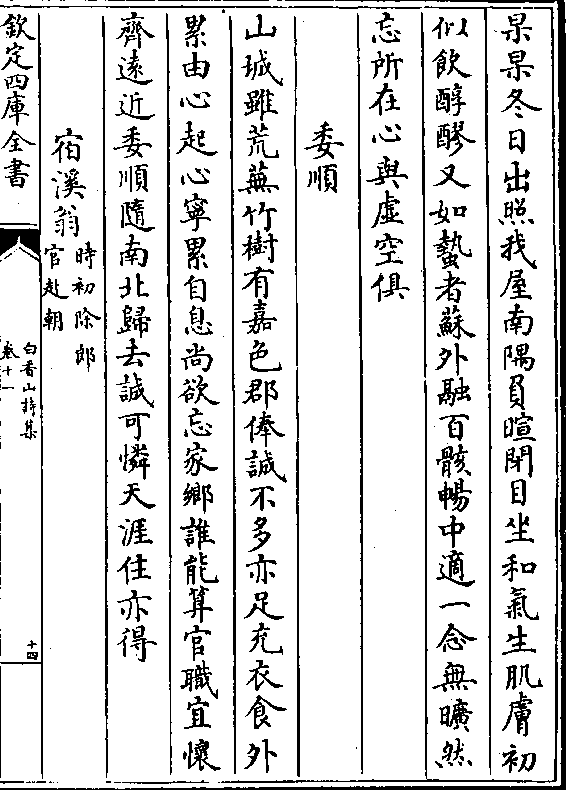 杲杲冬日出照我屋南隅負暄閉目坐和氣生肌膚初
似飲醇醪又如蟄者蘇外融百骸暢中適一念無曠然
忘所在心與虛空俱
委順
山城雖荒蕪竹樹有嘉色郡俸誠不多亦足充衣食外
累由心起心寧累自息尚欲忘家鄉誰能算官職宜懷
齊遠近委順隨南北歸去誠可憐天涯住亦得
宿溪翁
時初除郎
官赴朝
欽定四庫全書
白香山詩集
卷十一
十四